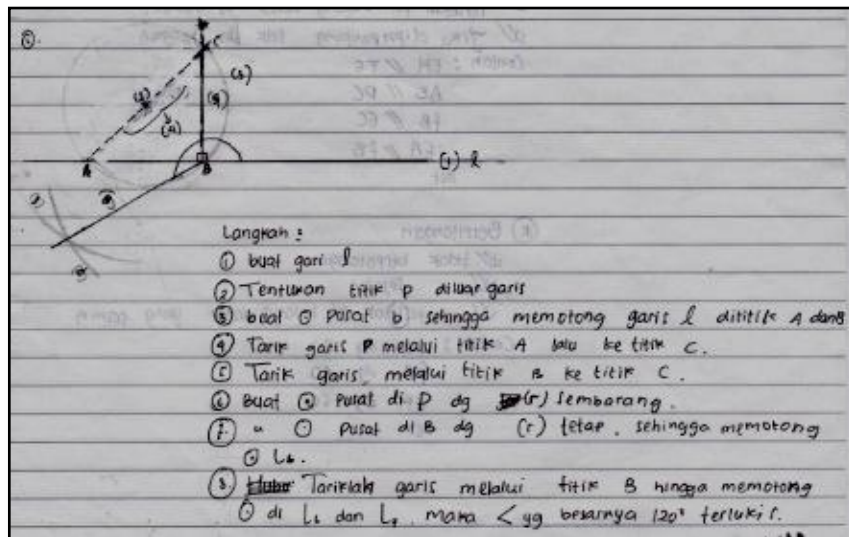 C
(5)
A
B
(1) l
Langkah :
① buat gari l
② Tentukan titik p diluar garis
③ buat ⊙ pusat b sehingga memotong garis l dititik A dan B
④ Tarik garis P melalui titik A lalu ke titik C.
⑤ Tarik garis melalui titik B ke titik C.
⑥ Buat ⊙ pusat di p dg (r) sembarang.
⑦ " ⊙ pusat di B dg (r) tetap. sehingga memotong
⊙ L₆.
⑧ Tariklah garis melalui titik B hingga memotong
⊙ di L₆ dan L₇ maka < yg besarnya 120° terlukis.